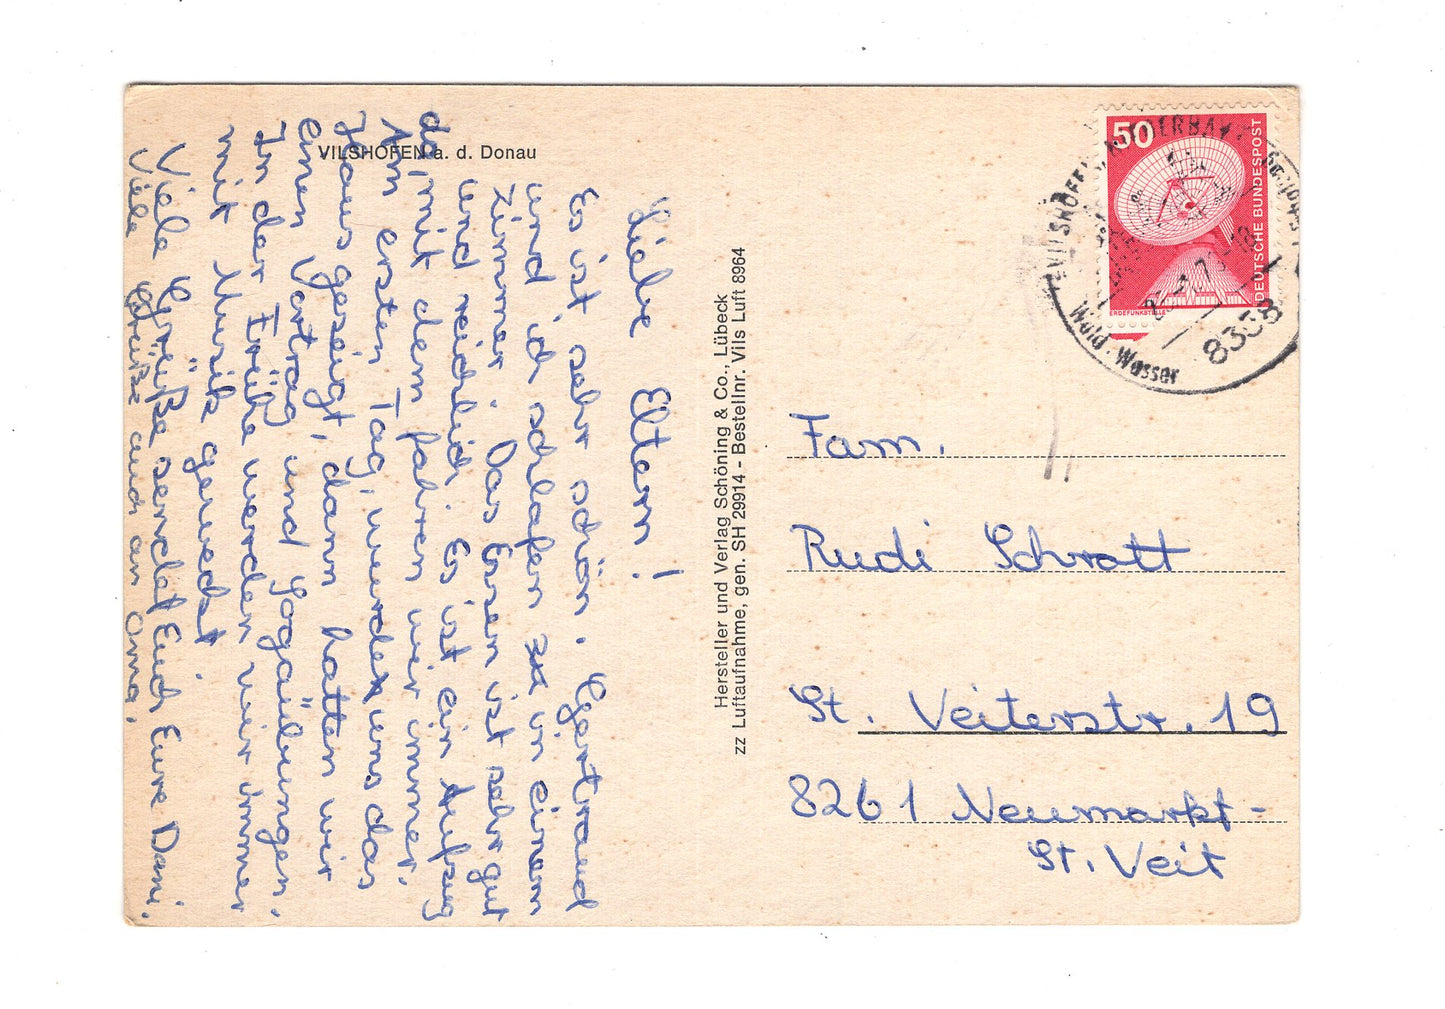 VILSHOFEN a. d. Donau
Liebe Eltern!
Es ist sehr schön. Gertraud
und ich schlafen in einem
Zimmer. Das Essen ist sehr gut
und reichlich. Es ist ein Aufzug
da, mit dem fahren wir immer.
Am ersten Tag, wurde uns das
Haus gezeigt, dann hatten wir
einen Vortrag und Yogaübungen.
In der Frühe werden wir immer
mit Musik geweckt.
Viele Grüße sendet Euch Eure Dani.
Viele Grüße auch an Oma.
Hersteller und Verlag Schöning & Co., Lübeck
zz Luftaufnahme, gen. SH 29914 - Bestellnr. Vils Luft 8964
50
DEUTSCHE BUNDESPOST
ERDEFUNKSTELLE
VILSHOFEN
Wald · Wasser
8358
Fam.
Rudi Schrott
St. Veiterstr. 19
8261 Neumarkt-
St. Veit